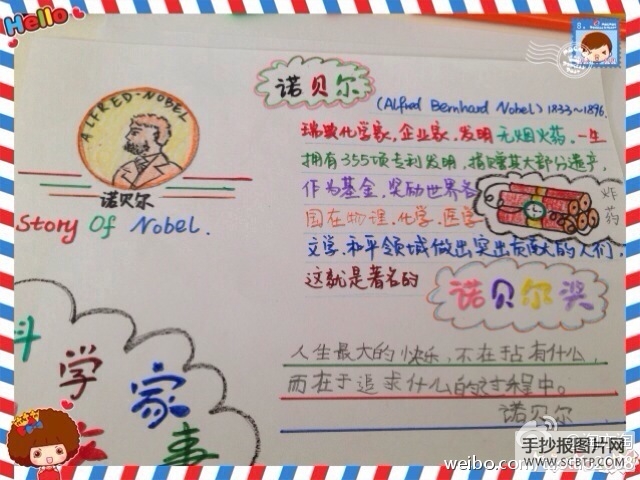 Hello
诺贝尔
(Alfred Bernhard Nobel) 1833~1896.
ALFRED·NOBEL
诺贝尔
Story Of Nobel.
瑞典化学家,企业家,发明无烟火药.一生
拥有355项专利发明,指嘱其大部分遗产,
作为基金,奖励世界各
国在物理.化学.医学
文学.和平领域做出突出贡献大的人们,
这就是著名的
诺贝尔奖
炸
药
科
学
家
事
人生最大的快乐,不在于占有什么,
而在于追求什么的过程中。
诺贝尔
手抄报图片网
WWW.SCBTP.COM